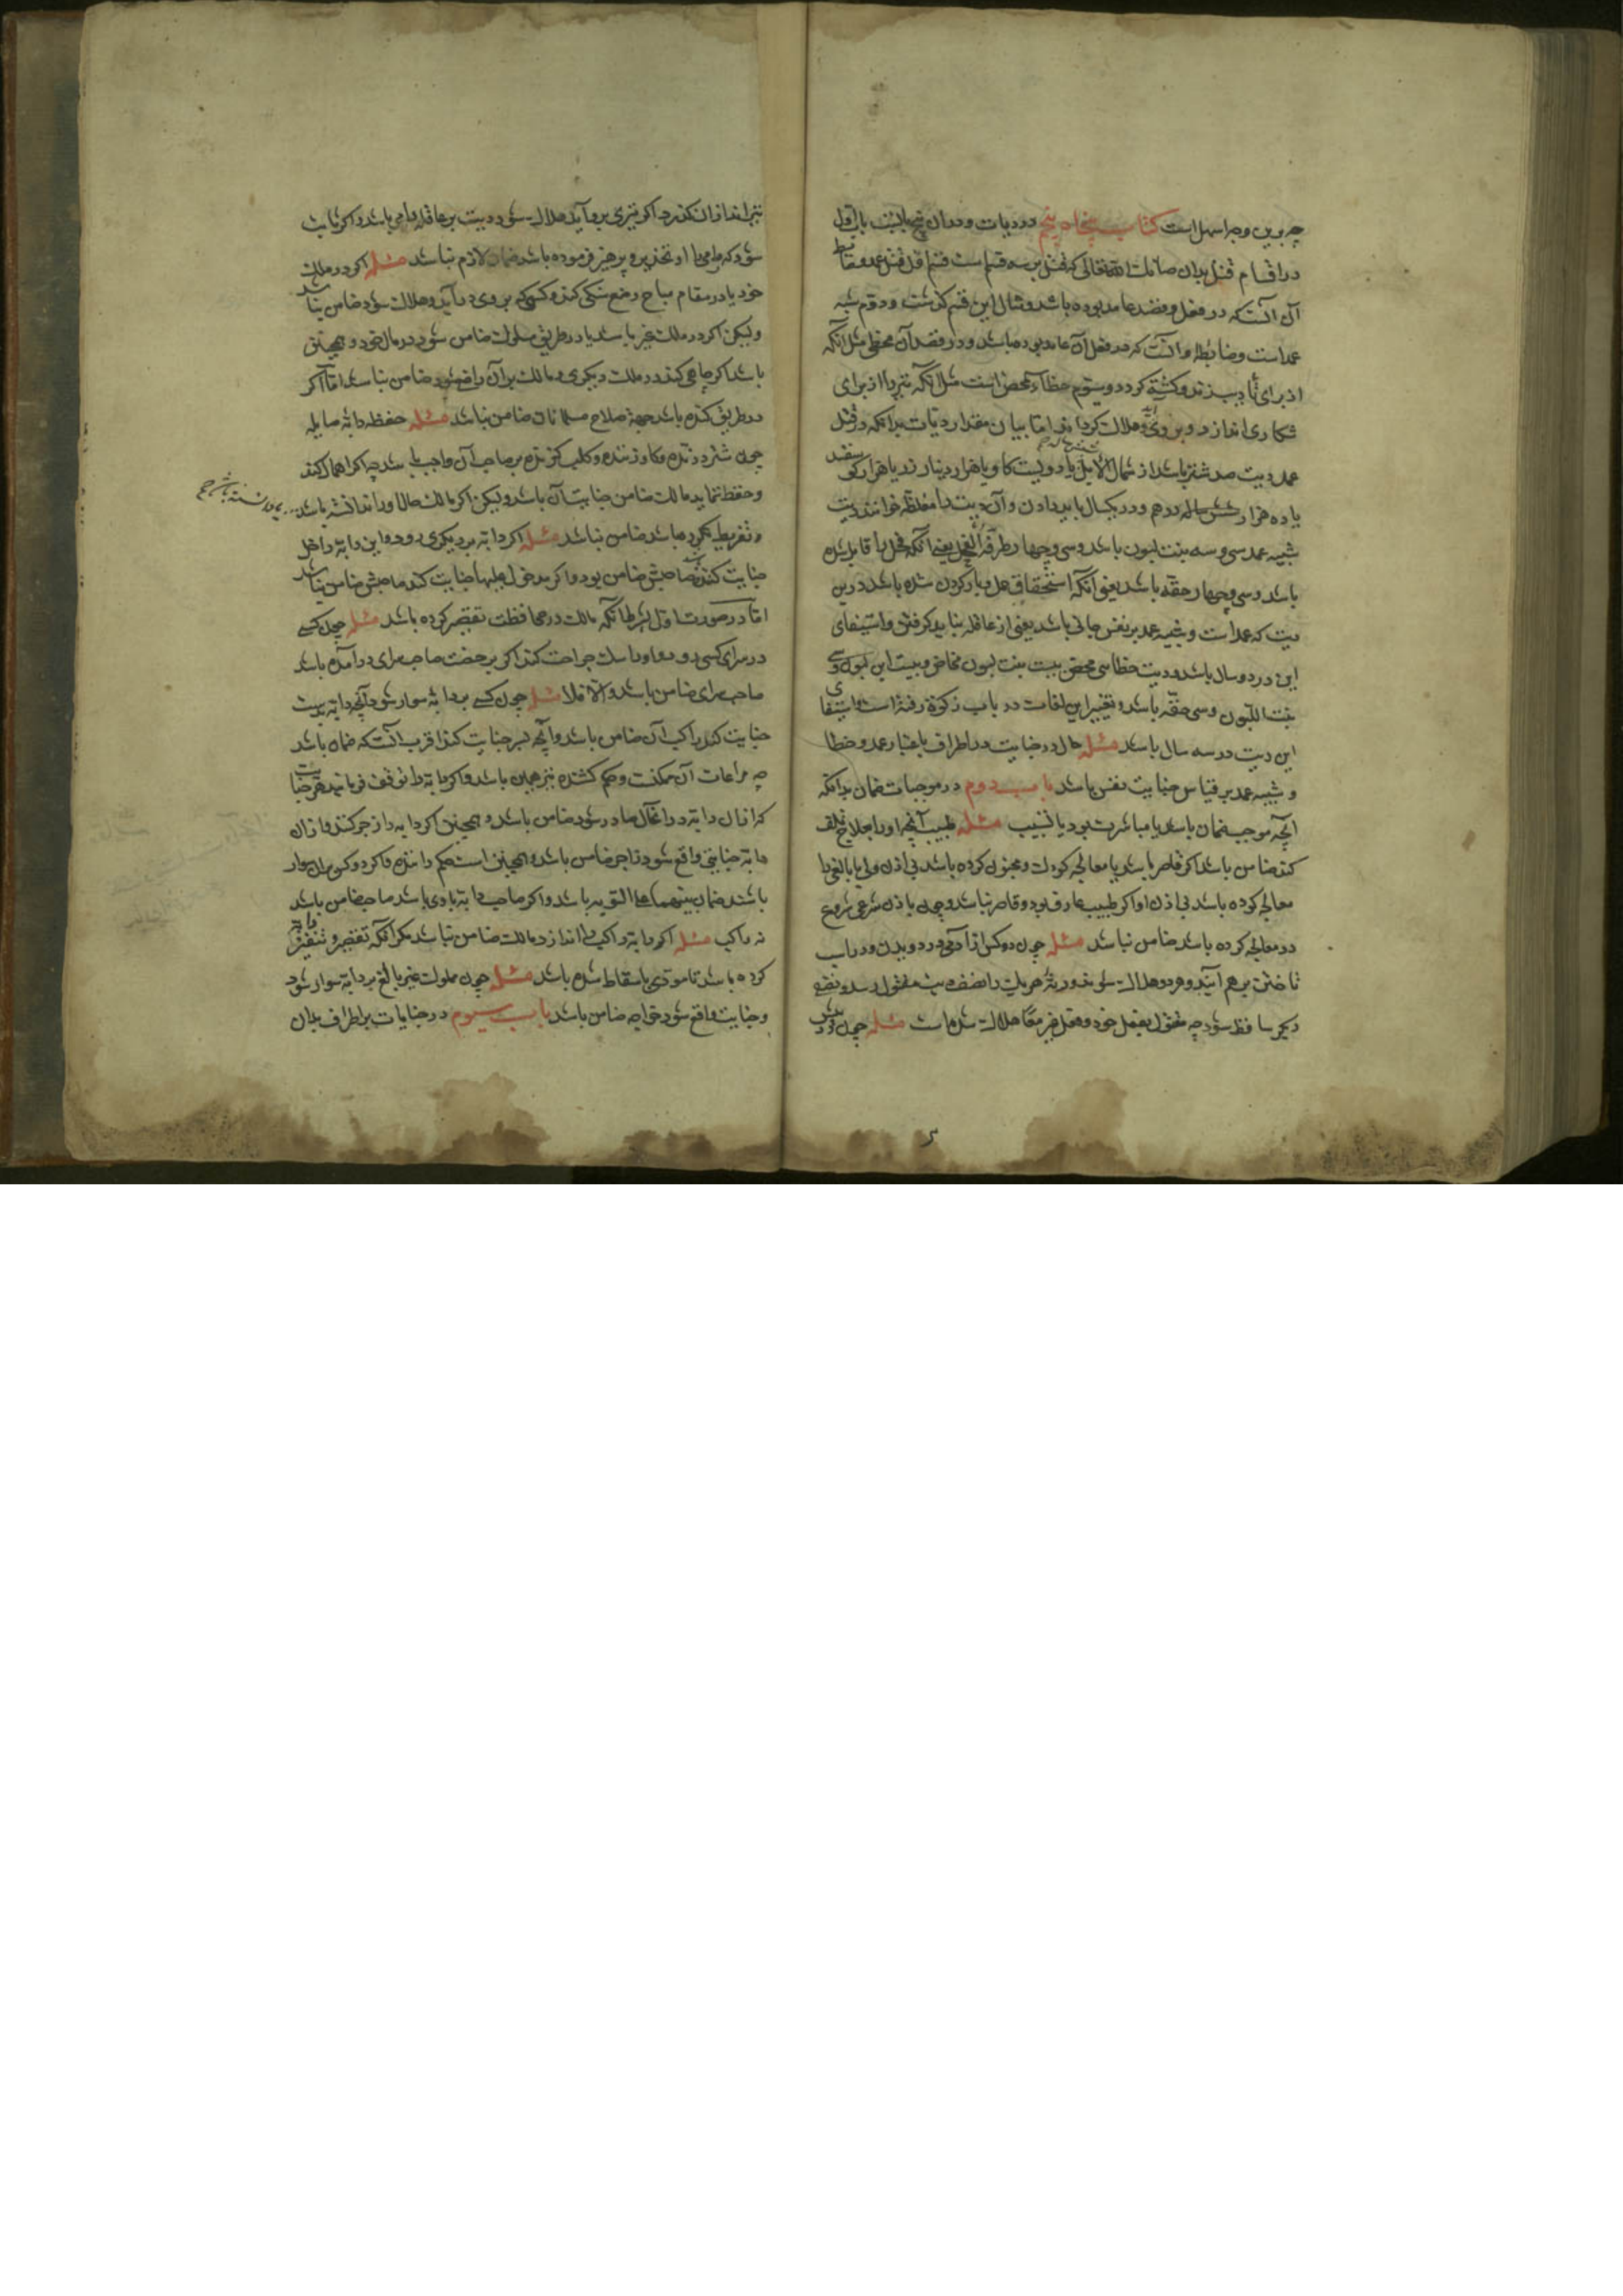 چه برین وجه اسهل است کتاب پنجاه پنجم در دیات و در آن پنج بابست باب اول
در اقسام قتل بدان صانک الله تعالی که قتل بر سه قسم است قسم اول قتل عمد و ضابط
آن آنست که در فعل و قصد عامد بوده باشد و مثال این قسم گذشت و دوم شبه
عمد است و ضابطه او آنست که در فعل آن عامد بوده باشد و در قصد آن مخطی مثل آنکه
از برای تأدیب زند و کشته گردد و سیوم خطاء محض است مثل آنکه تیر را از برای
شکاری اندازد و بر وی آید و هلاک گرداند اما بیان مقدار دیات بدانکه در قتل
عمد دیت صد شتر باشد از مسان الابل یا دویست گاو یا هزار دینار زر یا هزار گوسفند
یا ده هزار درهم و در یکسال باید دادن و آن دیت را مغلظه خوانند دیت
شبیه عمد سی و سه بنت لبون باشد و سی و چهار طروقة الفحل یعنی آنکه فحل را قابل شده
باشد و سی و چهار حقه باشد یعنی آنکه استحقاق حمل و بار کردن شده باشد درین
دیت که عمد است و شبیه عمد بر نفس جانی باشد یعنی از عاقله نباید گرفتن و استیفای
این در دو سال باشد و دیت خطاء محض بیست بنت مخاض و بیست ابن لبون و سی
بنت اللبون و سی حقه باشد و تفسیر این لغات در باب زکوة رفته است و استیفای
این دیت در سه سال باشد مسئله حال در جنایت در اطراف باعتبار عمد و خطا
و شبیه عمد بر قیاس جنایت نفس باشد باب دوم در موجبات ضمان بدانکه
آنچه موجب ضمان باشد یا مباشرت بود یا تسبیب مسئله طبیب آنچه او را بعلاج تلف
کند ضامن باشد اگر قاصر باشد یا معالجه کودک و مجنون کرده باشد بی اذن ولی یا بالغی را
معالجه کرده باشد بی اذن او اگر طبیب عارف بود و قاصر نباشد و چون باذن شرعی شروع
در معالجه کرده باشد ضامن نباشد مسئله چون دو کس از آدمی در دویدن و در اسب
تاختن بر هم آیند و هر دو هلاک شوند ورثه هر یک را نصف دیت مقتول رسد و نصف
دیگر ساقط شود چه مقتول بفعل خود و فعل غیر معا هلاک شده است مسئله چون در
تیرانداز آن گذرد اگر تیری برو آید هلاک شود دیت بر عاقله رامی باشد و اگر ثابت
شود که رامی او را تحذیر و پرهیز فرموده باشد ضمان لازم نباشد مسئله اگر در ملک
خود یا در مقام مباح وضع سنگی کند و کسی که بر وی در آید و هلاک شود ضامن نباشد
ولیکن اگر در ملک غیر باشد یا در طریق مسلوک ضامن شود در مال خود و همچنین
باشد اگر چاهی کند در ملک دیگری و مالک بر آن راضی شود ضامن نباشد اما اگر
در طریق کنده باشد جهة صلاح مسلمانان ضامن نباشد مسئله حفظ دابه صایله
چون شتر درنده و گاو زننده و کلب گزنده بر صاحب آن واجب باشد چه اگر اهمال کند
و حفظ ننماید مالک ضامن جنایت آن باشد ولیکن اگر مالک حال او را ندانسته باشد
و تفریط نکرده باشد ضامن نباشد مسئله اگر دابه بر دیگری رود و این دابه داخل
جنایت کند صاحبش ضامن بود و اگر مدخول علیها جنایت کند صاحبش ضامن نباشد
اما در صورت اول بشرط آنکه مالک در محافظت تقصیر کرده باشد مسئله چون کسی
در سرای کسی رود و او را سگ جراحت کند اگر برخصت صاحب سرای در آمده باشد
صاحب سرای ضامن باشد والا فلا مسئله چون کسی بر دابه سوار شود آنچه دابه بدست
جنایت کند راکب آن ضامن باشد و آنچه بسر جنایت کند اقرب آنست که ضمان باشد
چه مراعات آن ممکنست و حکم کشنده نیز همین باشد و اگر دابه را توقف فرماید هر جنایت
که از آن دابه در آنحال صادر شود ضامن باشد و همچنین اگر دابه را زجر کند و از آن
دابه جنایتی واقع شود زاجر ضامن باشد و همچنین است حکم راننده و اگر دو کس بر آن سوار
باشند ضمان بینهما علی السویه باشد و اگر صاحب دابه با وی باشد صاحب ضامن باشد
نه راکب مسئله اگر دابه راکب را اندازد مالک ضامن نباشد مگر آنکه تقصیر و تنفیر دابه
کرده باشد تا مودی باسقاط شده باشد مسئله چون مملوک غیر بالغ بر دابه سوار شود
و جنایت واقع شود خواجه ضامن باشد باب سیوم در جنایات بر اطراف بدان